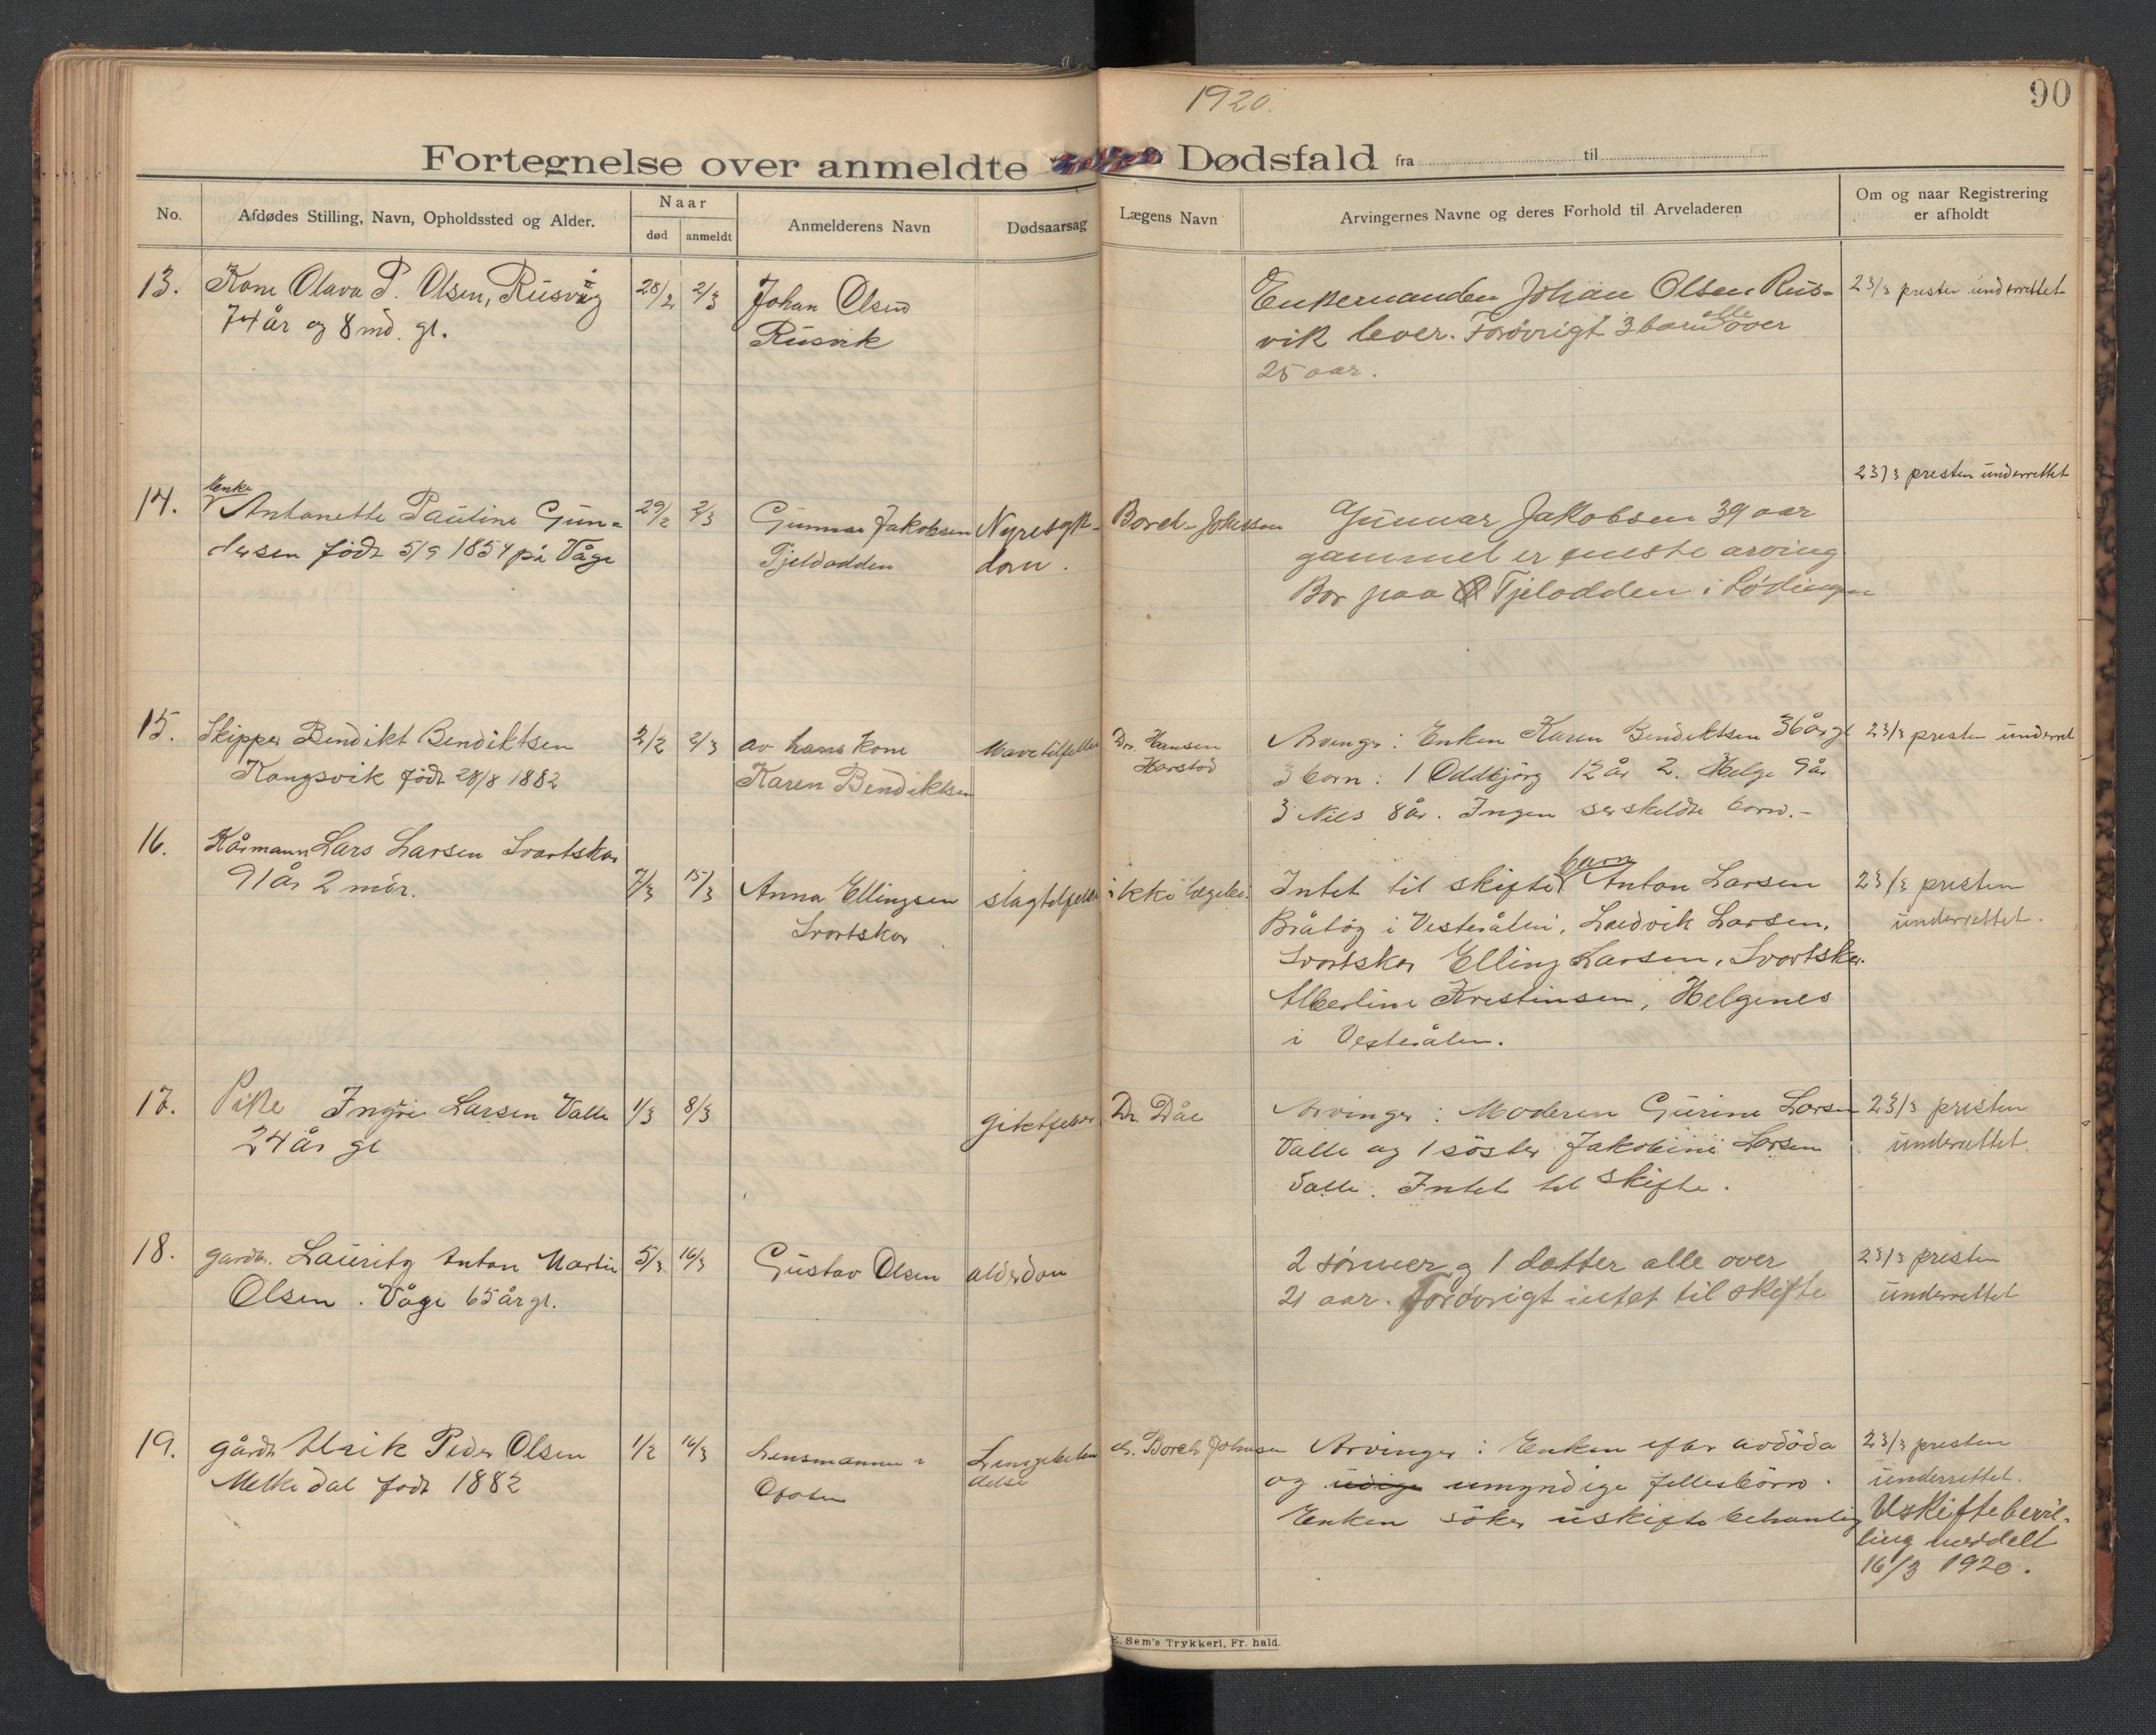 1920.
90
Fortegnelse over anmeldte Dødsfald fra til
No.
Afdødes Stilling, Navn, Opholdssted og Alder.
Naar
død
anmeldt
Anmelderens Navn
Dødsaarsag
Lægens Navn
Arvingernes Navne og deres Forhold til Arveladeren
Om og naar Registrering
er afholdt
13. Kone Olava P. Olsen, Rusvik
74 år og 8 md. gl.
28/2 2/3
Johan Olsen
Rusvik
Enkemanden Johan Olsen Rus-
vik lever. Forøvrigt 3 barn alle over
25 aar.
23/3 presten underrettet
14. Enke
Antonette Pauline Gun-
dersen født 5/9 1854 på Våge
29/2 2/3
Gunnar Jakobsen
Tjeldodden
Nyresyk-
dom.
Borch-Johnsen
Gunnar Jakobsen 39 aar
gammel er eneste arving
Bor paa Tjelodden i Lødingen
23/3 presten underrettet
15. Skipper Bendikt Bendiktsen
Kongsvik født 28/8 1882
2/2 2/3
av hans kone
Karen Bendiktsen
Mavetilfelle
Dr. Hansen
Harstad
Arvinger: Enken Karen Bendiktsen 36 år gl
3 born: 1 Oddbjørg 12 år 2. Helge 9 år
3 Nils 8 år. Ingen serskeldte born.-
23/3 presten underret
16. Kårmann Lars Larsen Svartskar
91 år 2 mdr.
7/3 15/3
Anna Ellingsen
Svartskar
slagtilfelde
ikke
Intet til skifte barn Anton Larsen
i Vesterålen, Ludvik Larsen,
Svartskar Elling Larsen, Svartskar.
Alberline Kristinsen, Helgenes
i Vesterålen.
23/3 presten
underrettet.
17. Pike Larsen Valle
24 år gl
1/3 8/3
giktfeber
Dr. Dåe
Arvinger: Moderen Gurine Larsen
Valle og 1 søster Jakobine Larsen
Valle. Intet til skifte.
23/3 presten
underrettet.
18. gardbr. Lauritz Anton Martin
Olsen. Våge 65 år gl.
5/3 16/3
Gustav Olsen
alderdom
2 sønner og 1 datter alle over
21 aar. Forøvrigt intet til skifte
23/3 presten
underrettet
19. gårdb Ulrik Peder Olsen
Melkedal født 1882
1/2 16/3
Lensmannen i
Ofoten
Lungebeten
delse
dr. Borch Johnsen
Arvinger: Enken efter avdøda
og umyndige fellesbørn.
Enken søker uskifte behanling
23/3 presten
underrettet.
Uskiftebevil-
ling meddelt
16/3 1920.
E. Sem's Trykkeri, Fr. hald.